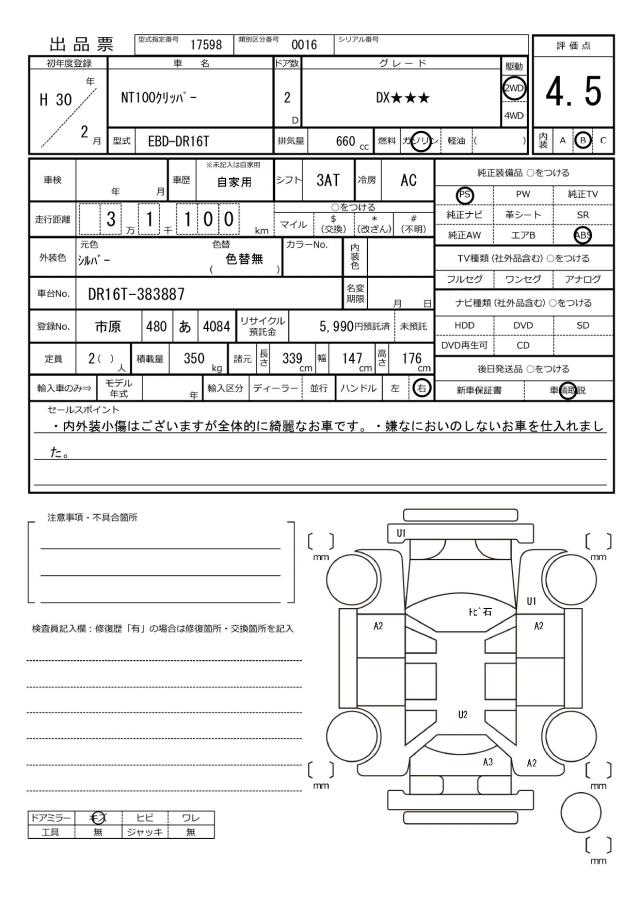 出品票 型式指定番号 17598 類別区分番号 0016 シリアル番号
評価点
4.5
内装 A B C
初年度登録 車名 ドア数 グレード 駆動
H 30 年 2 月
NT100ｸﾘｯﾊﾟｰ 2 D DX★★★ 2WD 4WD
型式 EBD-DR16T 排気量 660 cc 燃料 ガソリン 軽油 ( )
車検 年 月 車歴 ※未記入は自家用 自家用 シフト 3AT 冷房 AC
走行距離 3 万 1 千 1 0 0 km
○をつける
マイル $(交換) *(改ざん) #(不明)
外装色 元色 ｼﾙﾊﾞｰ 色替 ( 色替無 ) カラーNo. 内装色
車台No. DR16T-383887 名変期限 月 日
登録No. 市原 480 あ 4084 リサイクル預託金 5,990円預託済 未預託
定員 2( )人 積載量 350 kg 諸元 長さ 339 cm 幅 147 cm 高さ 176 cm
輸入車のみ⇒ モデル年式 年 輸入区分 ディーラー 並行 ハンドル 左 右
純正装備品 ○をつける
PS PW 純正TV
純正ナビ 革シート SR
純正AW エアB ABS
TV種類(社外品含む) ○をつける
フルセグ ワンセグ アナログ
ナビ種類(社外品含む) ○をつける
HDD DVD SD
DVD再生可 CD
後日発送品 ○をつける
新車保証書 車輌取説
セールスポイント
・内外装小傷はございますが全体的に綺麗なお車です。・嫌なにおいのしないお車を仕入れまし
た。
注意事項・不具合箇所
検査員記入欄：修復歴「有」の場合は修復箇所・交換箇所を記入
ドアミラー キズ ヒビ ワレ
工具 無 ジャッキ 無
U1
[ ] mm
[ ] mm
ﾄﾋﾞ石
U1
A2
A2
U2
A3
A2
[ ] mm
[ ] mm
[ ] mm